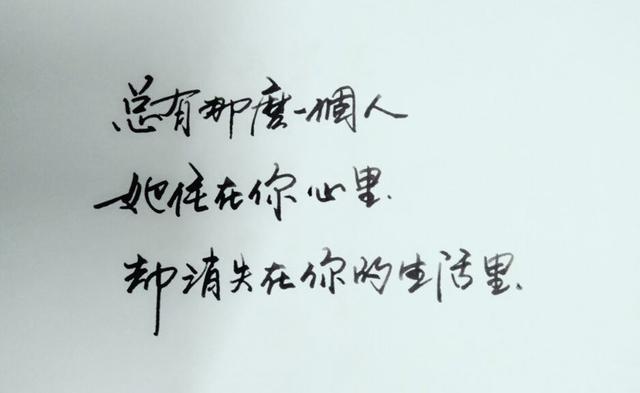 总有那麽一個人
她住在你心里.
却消失在你的生活里.